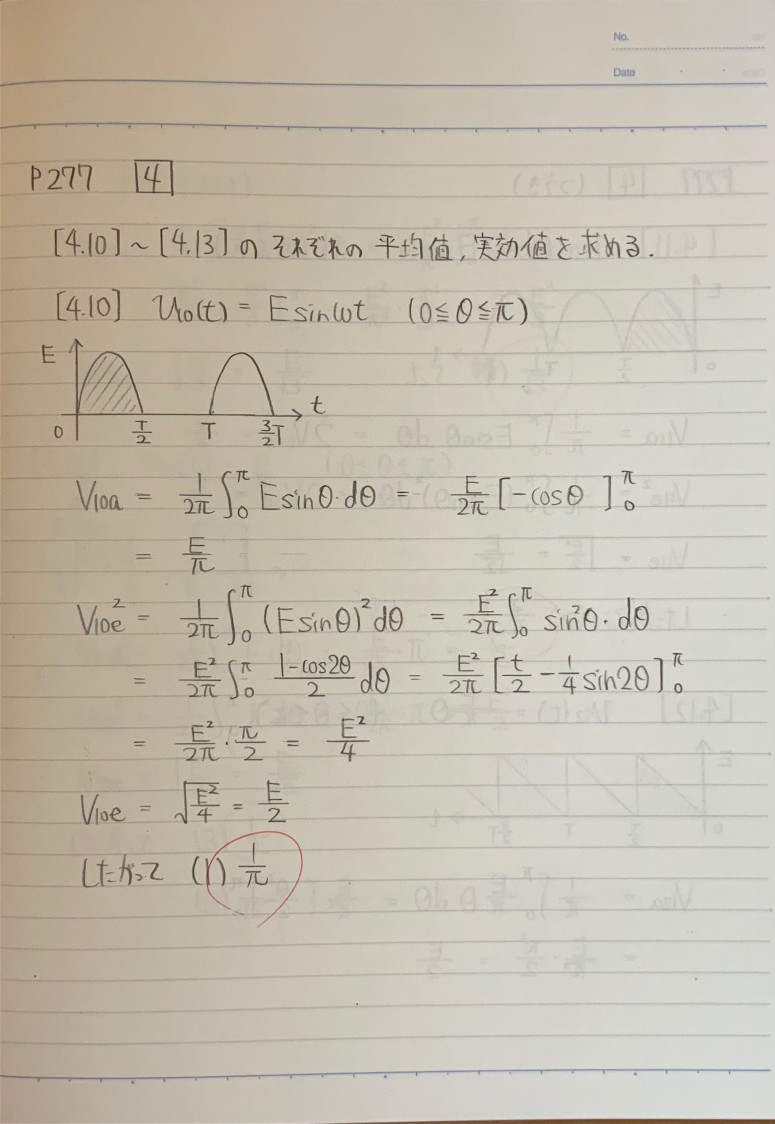 No.
Date
P277 [4]
[4.10]~[4.13]の それぞれの 平均値, 実効値を求める.
[4.10] v₁₀(t) = E sinωt (0≦θ≦π)
E
0 T/2 T 3/2T t
V₁₀a = 1/2π ∫₀^π E sinθ·dθ = E/2π [-cosθ]₀^π
= E/π
V₁₀e² = 1/2π ∫₀^π (E sinθ)² dθ = E²/2π ∫₀^π sin²θ·dθ
= E²/2π ∫₀^π (1-cos2θ)/2 dθ = E²/2π [t/2 - 1/4 sin2θ]₀^π
= E²/2π · π/2 = E²/4
V₁₀e = √(E²/4) = E/2
したがって (1) 1/π